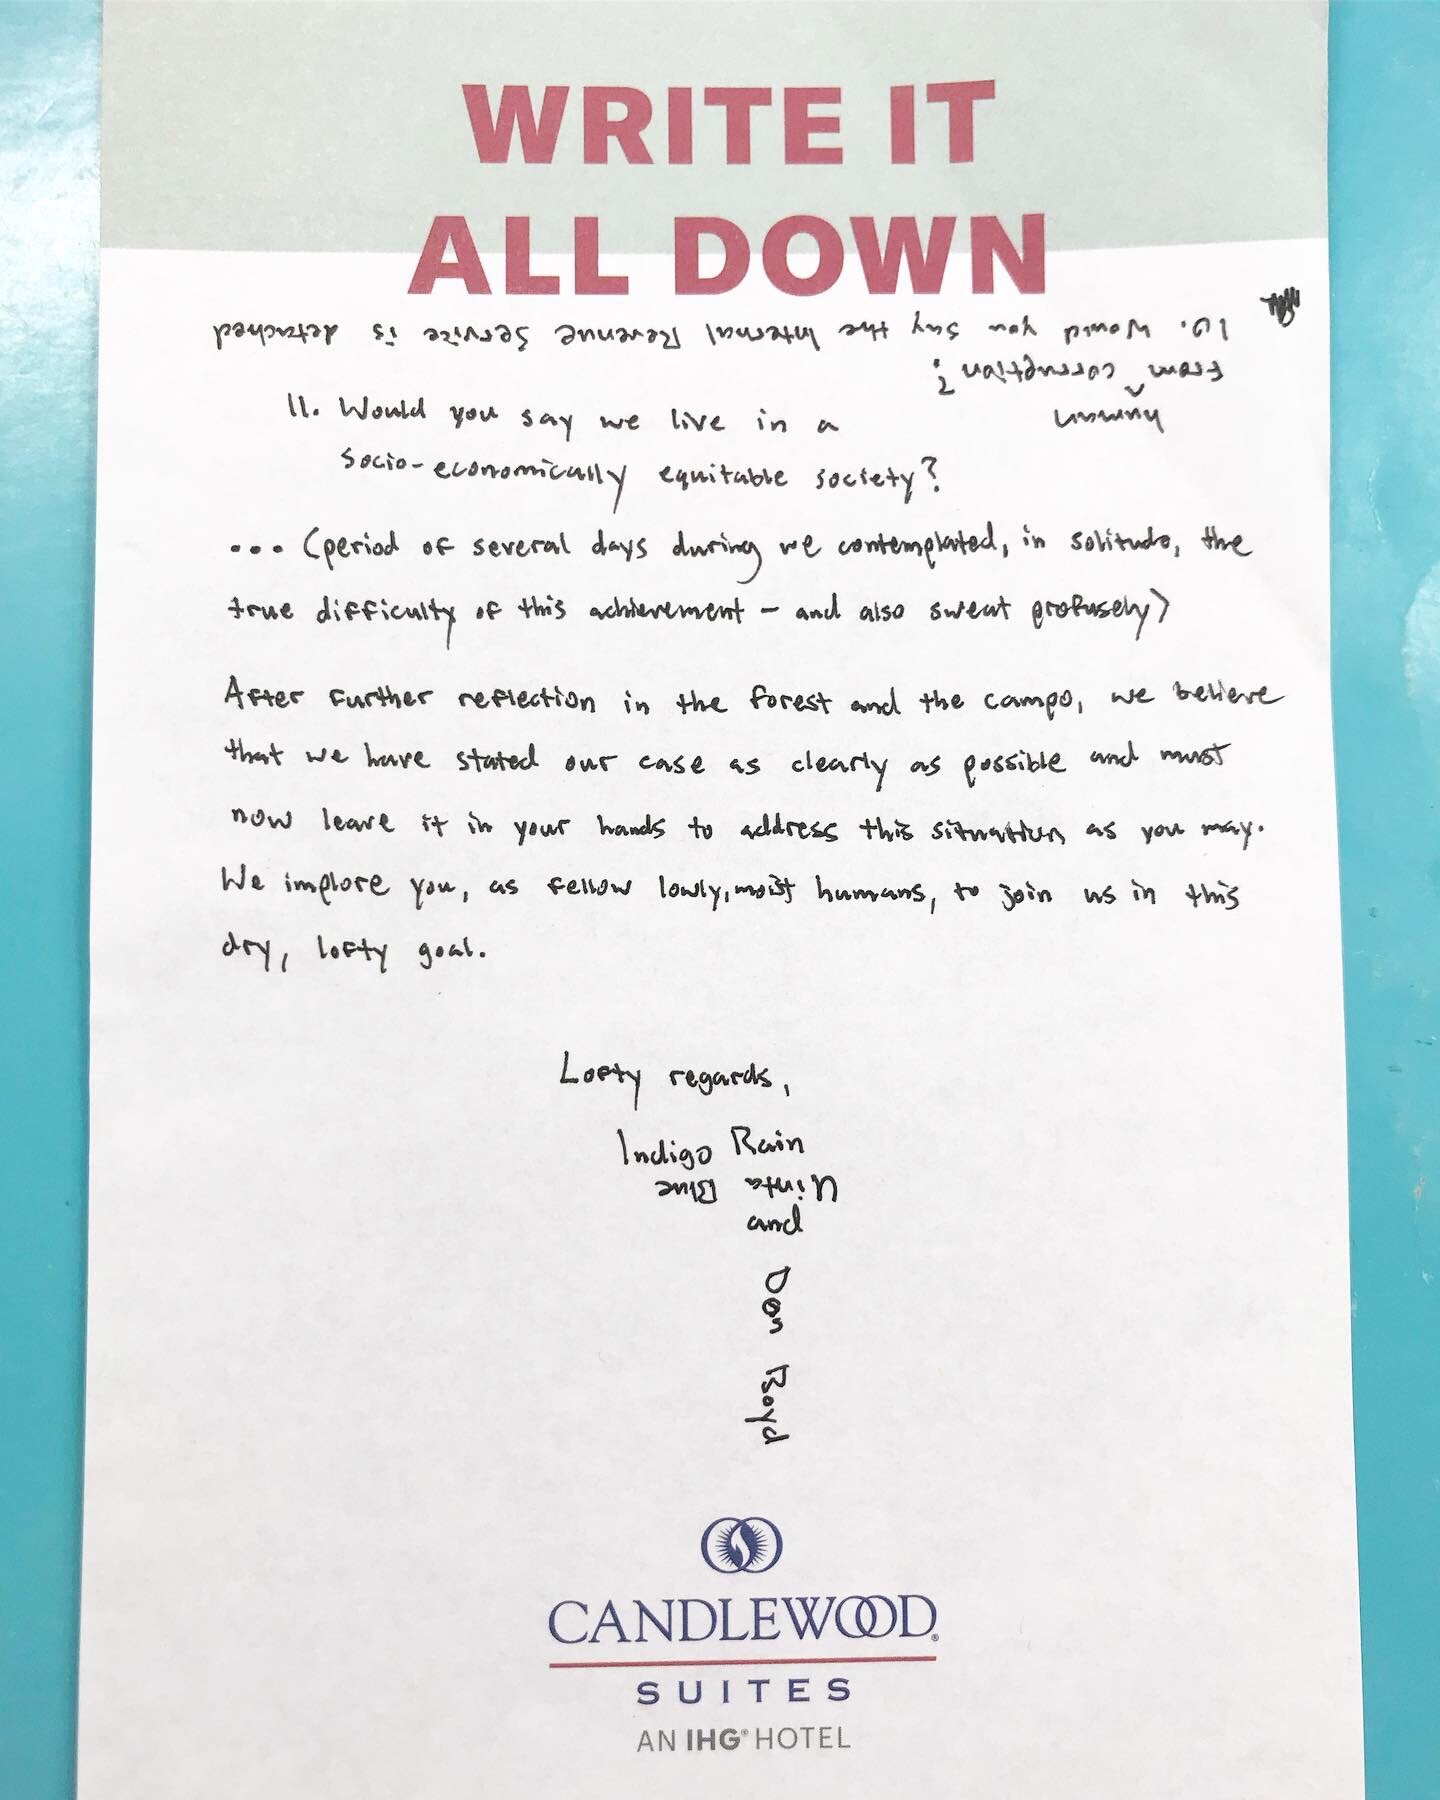 WRITE IT
ALL DOWN
10. Would you say the Internal Revenue Service is detached
from ^ corruption?
human
11. Would you say we live in a
socio-economically equitable society?
... (period of several days during we contemplated, in solitude, the
true difficulty of this achievement - and also sweat profusely)
After further reflection in the forest and the campo, we believe
that we have stated our case as clearly as possible and must
now leave it in your hands to address this situation as you may.
We implore you, as fellow lowly, moist humans, to join us in this
dry, lofty goal.
Lofty regards,
Indigo Rain
Uinta Blue
and
Don Boyd
CANDLEWOOD®
SUITES
AN IHG® HOTEL